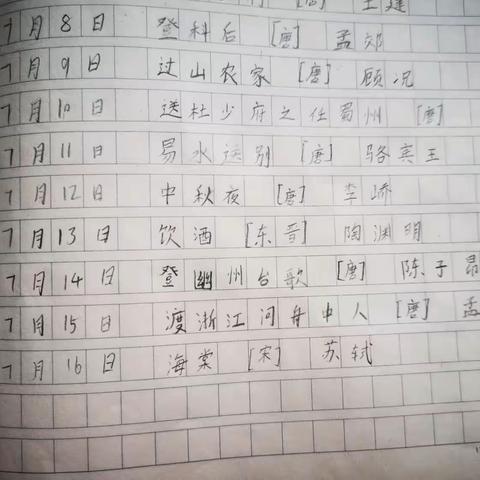 [唐] 王建
7月8日 登科后 [唐] 孟郊
7月9日 过山农家 [唐] 顾况
7月10日 送杜少府之任蜀州 [唐]
7月11日 易水送别 [唐] 骆宾王
7月12日 中秋夜 [唐] 李峤
7月13日 饮酒 [东晋] 陶渊明
7月14日 登幽州台歌 [唐] 陈子昂
7月15日 渡浙江问舟中人 [唐] 孟
7月16日 海棠 [宋] 苏轼